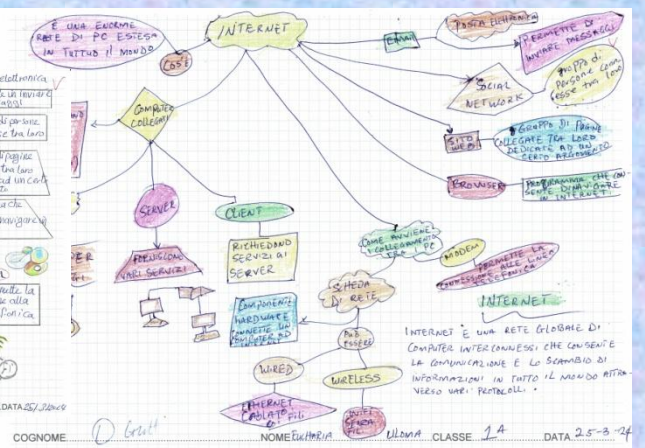 È UNA ENORME
RETE DI PC ESTESA
IN TUTTUO IL MONDO
COS'È
INTERNET
EMAIL
POSTA ELETTRONICA
PERMETTE DI
INVIARE MESSAGGI
SOCIAL
NETWORK
GRUPPO DI
PERSONE CONN
ESSE TRA LORO
SITO
WEB
GRUPPO DI PAGINE
COLLEGATE TRA LORO
DEDICATE AD UN
CERTO ARGOMENTO
BROWSER
PROGRAMMA CHE CON-
SENTE DI NAVIGARE
IN INTERNET
COMPUTER
COLLEGATI
SERVER
FORNISCONO
VARI SERVIZI
CLIENT
RICHIEDONO
SERVIZI AI
SERVER
COME AVVIENE
COLLEGAMENTO
TRA PC
MODEM
PERMETTE LA
CONNESSIONE ALLE LINEA
TELEFONICA
SCHEDA
DI RETE
COMPONENTE
HARDWARE
CONNETTE UN
COMPUTER AD
PUÒ
ESSERE
WIRED
WIRELESS
ETHERNET
CABLATO
FILI
SENZA
FILI
INTERNET
INTERNET È UNA RETE GLOBALE DI
COMPUTER INTERCONNESSI CHE CONSENTE
LA COMUNICAZIONE E LO SCAMBIO DI
INFORMAZIONI IN TUTTO IL MONDO ATTRA-
VERSO VARI PROTOCOLLI.
elettronica
di persone
se tra loro
di pagine
tra loro
ad un certo
che
navigare
la
alla
fonica
DATA
COGNOME
NOME EUCHARIA ULOMA CLASSE 1A DATA 25-3-24